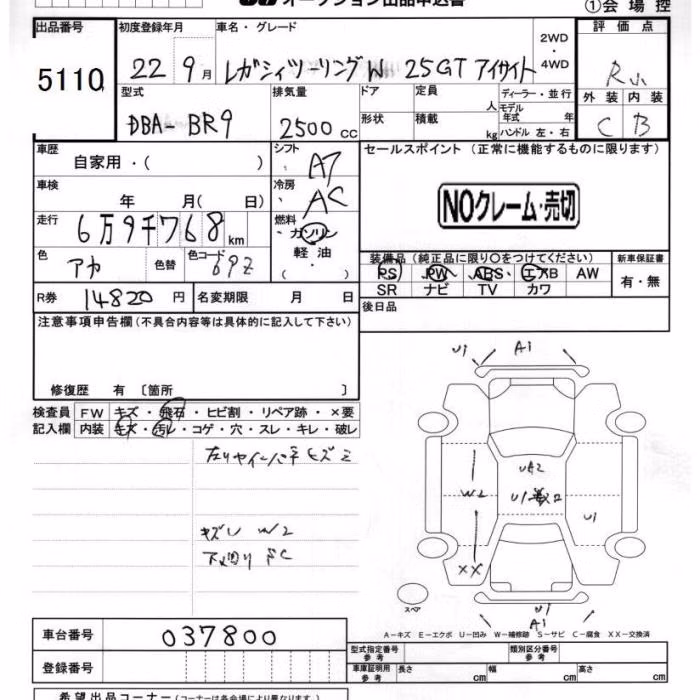 オークション出品申込書
①会場控
出品番号 初度登録年月 車名・グレード 評価点
5110 22 9月 レガシィツーリングW 25GT アイサイト 2WD・4WD R
型式 排気量 ドア 定員 人 ディーラー・並行 外装 内装
DBA-BR9 2500cc 形状 積載 kg モデル年式 年式 ハンドル 左・右 C B
車歴 シフト セールスポイント (正常に機能するものに限ります)
自家用・( ) A7
車検 冷房
年 月( 日) AC NOクレーム・売切
走行 燃料
6万9千768km ガソリン
色 色替 色コード 軽油 装備品(純正品に限り〇をつけてください) 新車保証書
アカ 69Z ( ・ ) PS PW ABS エアB AW 有・無
SR ナビ TV カワ
R券 14820円 名変期限 月 日 後日品
注意事項申告欄(不具合内容等は具体的に記入して下さい)
修復歴 有 〔箇所 〕
検査員 FW キズ・飛石・ヒビ割・リペア跡・×要
記入欄 内装 キズ・汚レ・コゲ・穴・スレ・キレ・破レ
キズU W2
下廻りドC
U1 A1
UA2
W2 U1 U1
XX
U1
A1
スペア
A-キズ E-エクボ U-凹み W-補修跡 S-サビ C-腐食 XX-交換済
車台番号 037800
登録番号
型式指定番号 参考 類別区分番号 参考
車庫証明用 参考 長さ cm 幅 cm 高さ cm
希望出品コーナー(コーナーは各会場により異なります。)